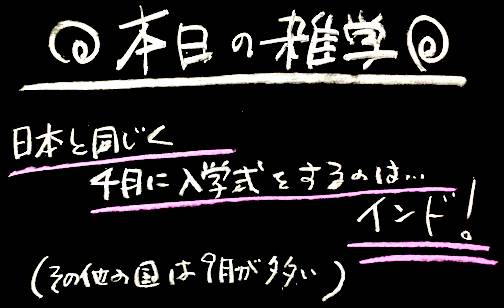 本日の雑学
日本と同じく
4月に入学式をするのは…
インド!
(その他の国は9月が多い)